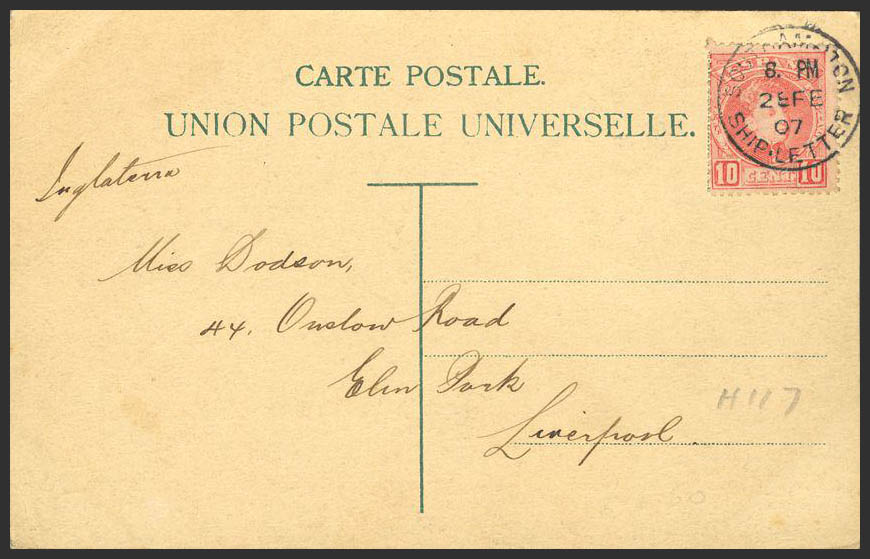 CARTE POSTALE.
UNION POSTALE UNIVERSELLE.
SOUTHAMPTON
8. PM
28 FE
07
SHIP-LETTER
10 CENT 10
Inglaterra
Miss Dodson,
44. Onslow Road
Elm Park
Liverpool.
H117